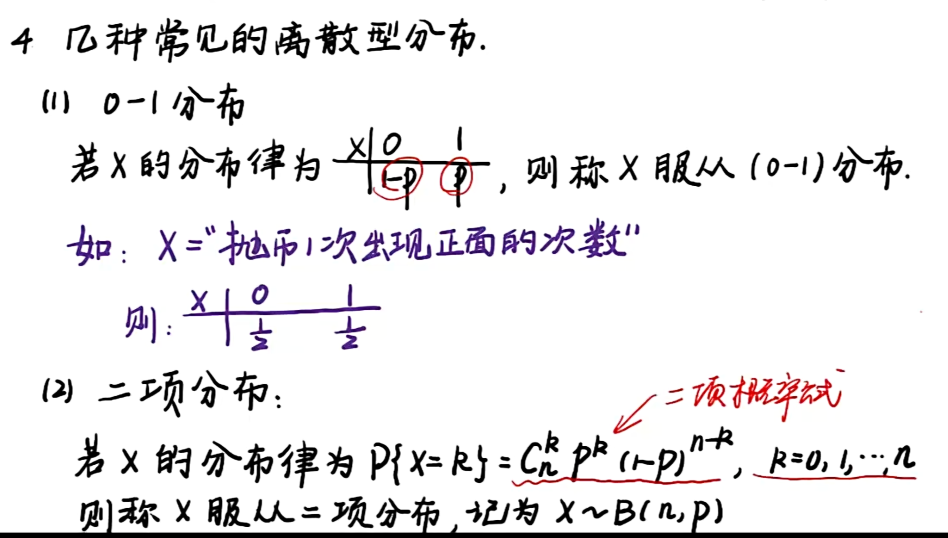 4 几种常见的离散型分布.
(1) 0-1分布
若X的分布律为 X 0 1 1-p p , 则称X服从(0-1)分布.
如: X="抛币1次出现正面的次数"
则: X 0 1 1/2 1/2
(2) 二项分布:
二项概率公式
若X的分布律为P{X=k}=C_n^k p^k (1-p)^{n-k}, k=0,1,…,n
则称X服从二项分布,记为X~B(n,p)